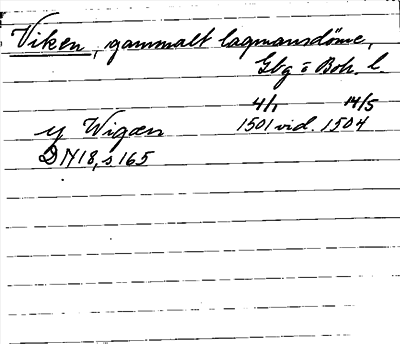 Viken, gammalt lagmansdöme,
Gbg o Boh. l.
4/1 14/5
y Wigæn 1501 vid. 1504
DN18, s 165